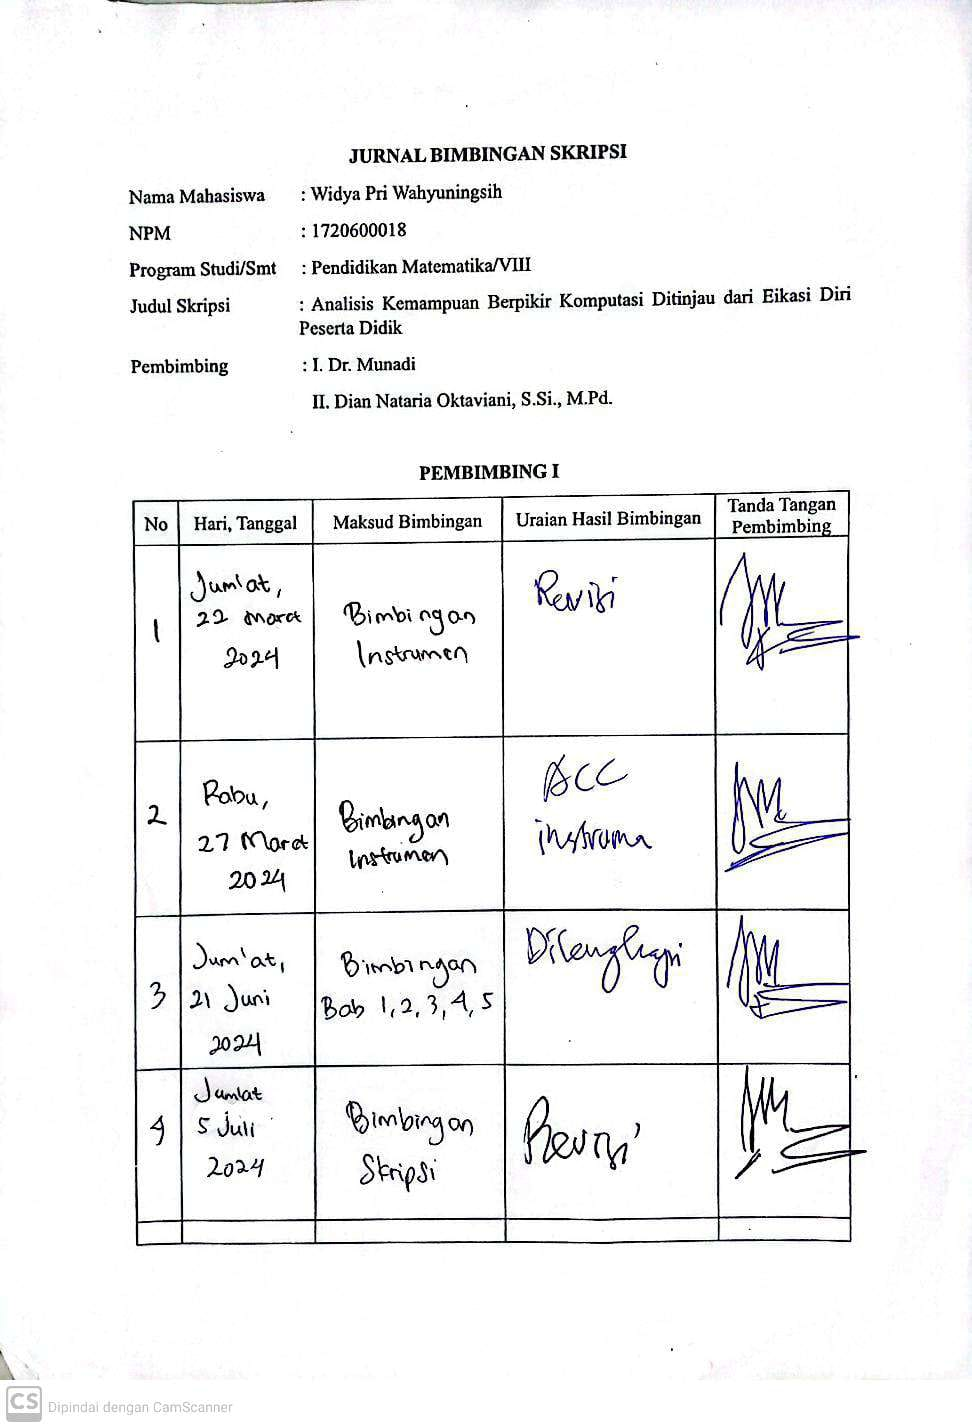 JURNAL BIMBINGAN SKRIPSI
Nama Mahasiswa : Widya Pri Wahyuningsih
NPM : 1720600018
Program Studi/Smt : Pendidikan Matematika/VIII
Judul Skripsi : Analisis Kemampuan Berpikir Komputasi Ditinjau dari Eikasi Diri
Peserta Didik
Pembimbing : I. Dr. Munadi
II. Dian Nataria Oktaviani, S.Si., M.Pd.
PEMBIMBING I
No Hari, Tanggal Maksud Bimbingan Uraian Hasil Bimbingan Tanda Tangan
Pembimbing
1 Jum'at,
22 Maret
2024
Bimbingan
Instrumen
Revisi
2 Rabu,
27 Maret
2024
Bimbingan
Instrumen
ACC
instrumen
3 Jum'at,
21 Juni
2024
Bimbingan
Bab 1, 2, 3, 4, 5
Dilengkapi
4 Jumat
5 Juli
2024
Bimbingan
Skripsi
Revisi
CS Dipindai dengan CamScanner